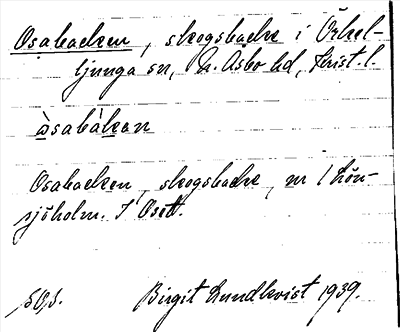 Osabacken, skogsbacke i Örkel-
ljunga sn, N. Åsbo hd, Krist. l.
àsabàkan
Osabacken, skogsbacke, nr 1 Lön-
sjöholm. I Oset.
Birgit Lundkvist 1939.